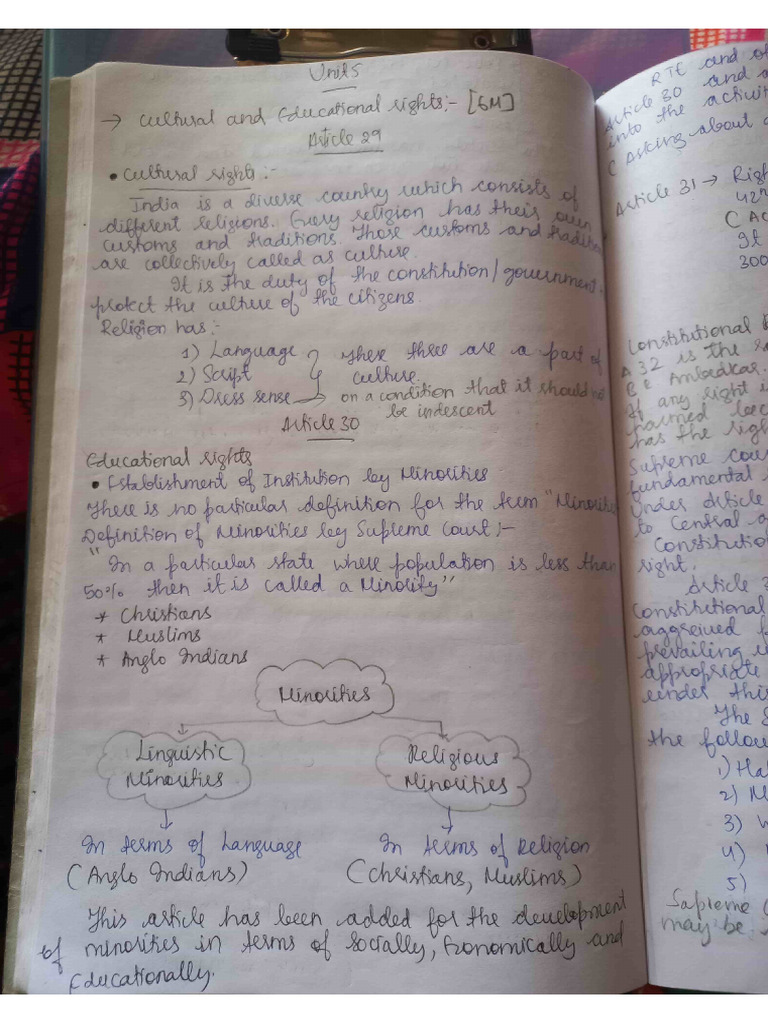 Unit 5
→ Cultural and Educational rights:- [6M]
Article 29
• Cultural rights :-
India is a diverse country which consists of
different religions. Every religion has their own
customs and traditions. Those customs and tradition
are collectively called as culture.
It is the duty of the constitution/government
protect the culture of the citizens.
Religion has:-
1) Language
2) Script
3) Dress sense
These three are a part of
culture.
on a condition that it should not
be indescent
Article 30
Educational rights
• Establishment of Institution by Minorities
There is no particular definition for the term "Minorities
Definition of Minorities by Supreme Court:-
"In a particular state where population is less than
50% then it is called a Minority"
* Christians
* Muslims
* Anglo Indians
Minorities
Linguistic
Minorities
Religious
Minorities
In terms of Language
(Anglo Indians)
In terms of Religion
(Christians, Muslims)
This article has been added for the development
of minorities in terms of Socially, Economically and
Educationally.
RTE and
Article 30 and
into the
( Asking about
Article 31 →
42
300
Constitutional
A 32 is the
Ambedkar.
If any right
harmed
has the
Supreme
fundamental
Under Article
to Central
right.
Article
Constitutional
prevailing
appropriate
under this
The
the
1)
2)
3)
4)
5)
may be